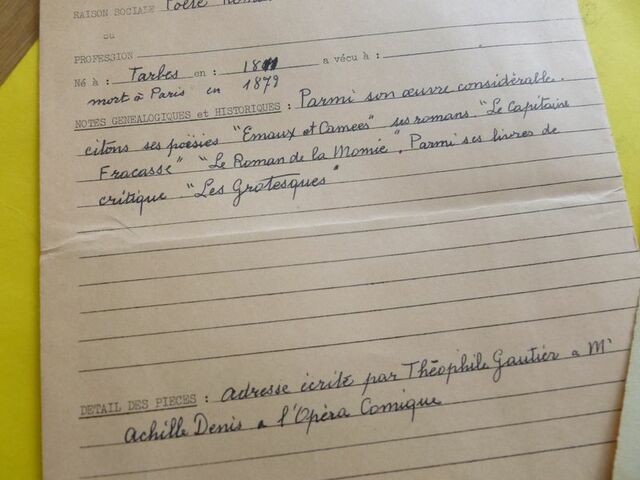 RAISON SOCIALE Poète
ou
PROFESSION
Né à : Tarbes en : 1811 a vécu à :
mort à Paris en 1879
NOTES GENEALOGIQUES et HISTORIQUES : Parmi son œuvre considérable.
citons ses poësies "Emaux et Camees" ses romans. "Le Capitaine
Fracasse" "Le Roman de la Momie". Parmi ses livres de
critique "Les Grotesques"
DETAIL DES PIECES : adresse écrite par Théophile Gautier a Mr
Achille Denis a l'Opèra Comique